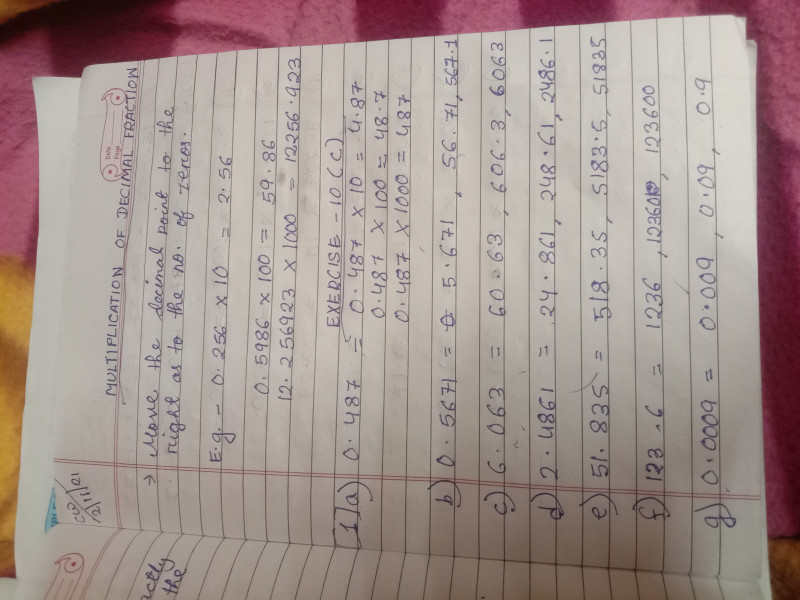 Date
Page
CW
2/11/21
MULTIPLICATION OF DECIMAL FRACTION
→ Move the decimal point to the
right as to the no. of zeros.
E.g. - 0.256 × 10 = 2.56
0.5986 × 100 = 59.86
12.256923 × 1000 = 12256.923
EXERCISE - 10 (C)
1) a) 0.487 = 0.487 × 10 = 4.87
0.487 × 100 = 48.7
0.487 × 1000 = 487
b) 0.5671 = 5.671, 56.71, 567.1
c) 6.063 = 60.63, 606.3, 6063
d) 2.4861 = 24.861, 248.61, 2486.1
e) 51.835 = 518.35, 5183.5, 51835
f) 123.6 = 1236, 12360, 123600
g) 0.0009 = 0.009, 0.09, 0.9
actly
the